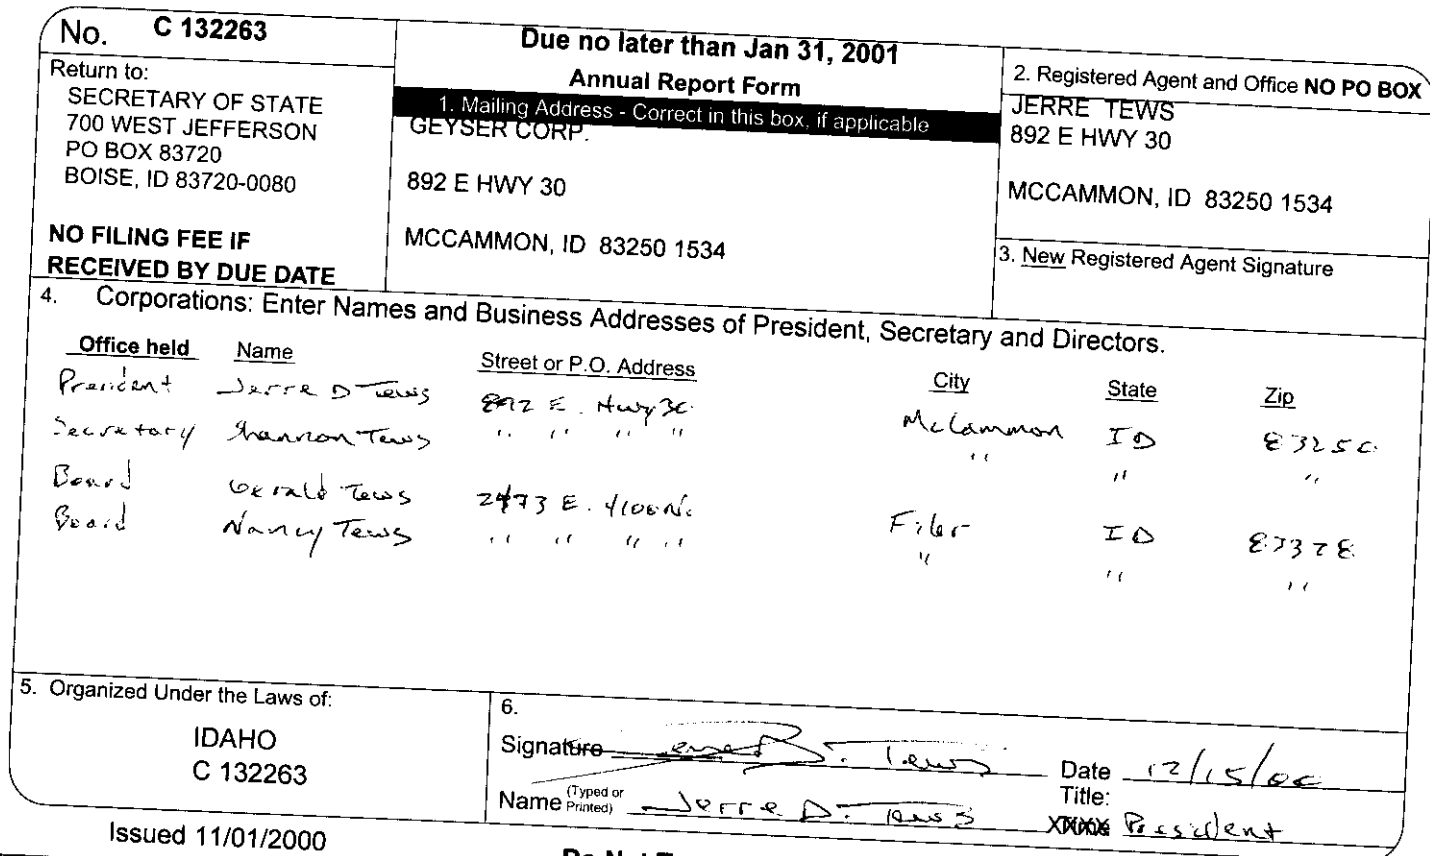 No. C 132263
Return to:
SECRETARY OF STATE
700 WEST JEFFERSON
PO BOX 83720
BOISE, ID 83720-0080
NO FILING FEE IF
RECEIVED BY DUE DATE
Due no later than Jan 31, 2001
Annual Report Form
1. Mailing Address - Correct in this box, if applicable
GEYSER CORP.
892 E HWY 30
MCCAMMON, ID 83250 1534
2. Registered Agent and Office NO PO BOX
JERRE TEWS
892 E HWY 30
MCCAMMON, ID 83250 1534
3. New Registered Agent Signature
4. Corporations: Enter Names and Business Addresses of President, Secretary and Directors.
Office held Name Street or P.O. Address City State Zip
President Jerre D Tews 892 E. Hwy 30 McCammon ID 83250
Secretary Shannon Tews " " " " " " "
Board Gerald Tews 2473 E. 4100 N. Filer ID 83328
Board Nancy Tews " " " " " " "
5. Organized Under the Laws of:
IDAHO
C 132263
6.
Signature Jerre D. Tews Date 12/15/00
Name (Typed or Printed) Jerre D. Tews Title: President
Issued 11/01/2000